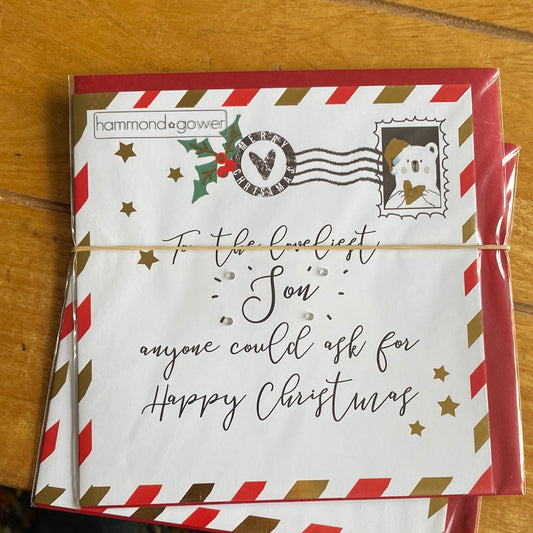 hammond gower
MERRY CHRISTMAS
To the loveliest
Son
anyone could ask for
Happy Christmas